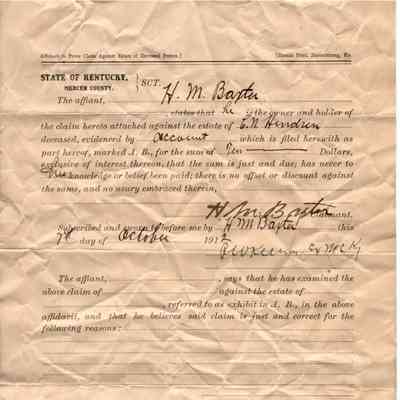 Affidavit to Prove Claim Against Estate of Deceased Person.
STATE OF KENTUCKY,
MERCER COUNTY.
SCT.
The affiant, H. M. Baxter
states that he is the owner and holder of
the claim hereto attached against the estate of
deceased, evidenced by account which is filed herewith as
part hereof, marked A. B., for the sum of Ten Dollars,
exclusive of interest thereon, that the sum is just and due; has never to
his knowledge or belief been paid; there is no offset or discount against
the same, and no usury embraced therein,
H. M. Baxter Affiant.
Subscribed and sworn to before me by H M Baxter this
7th day of October 191
The affiant, , says that he has examined the
above claim of against the estate of
, referred to as exhibit in A. B., in the above
affidavit, and that he believes said claim is just and correct for the
following reasons: